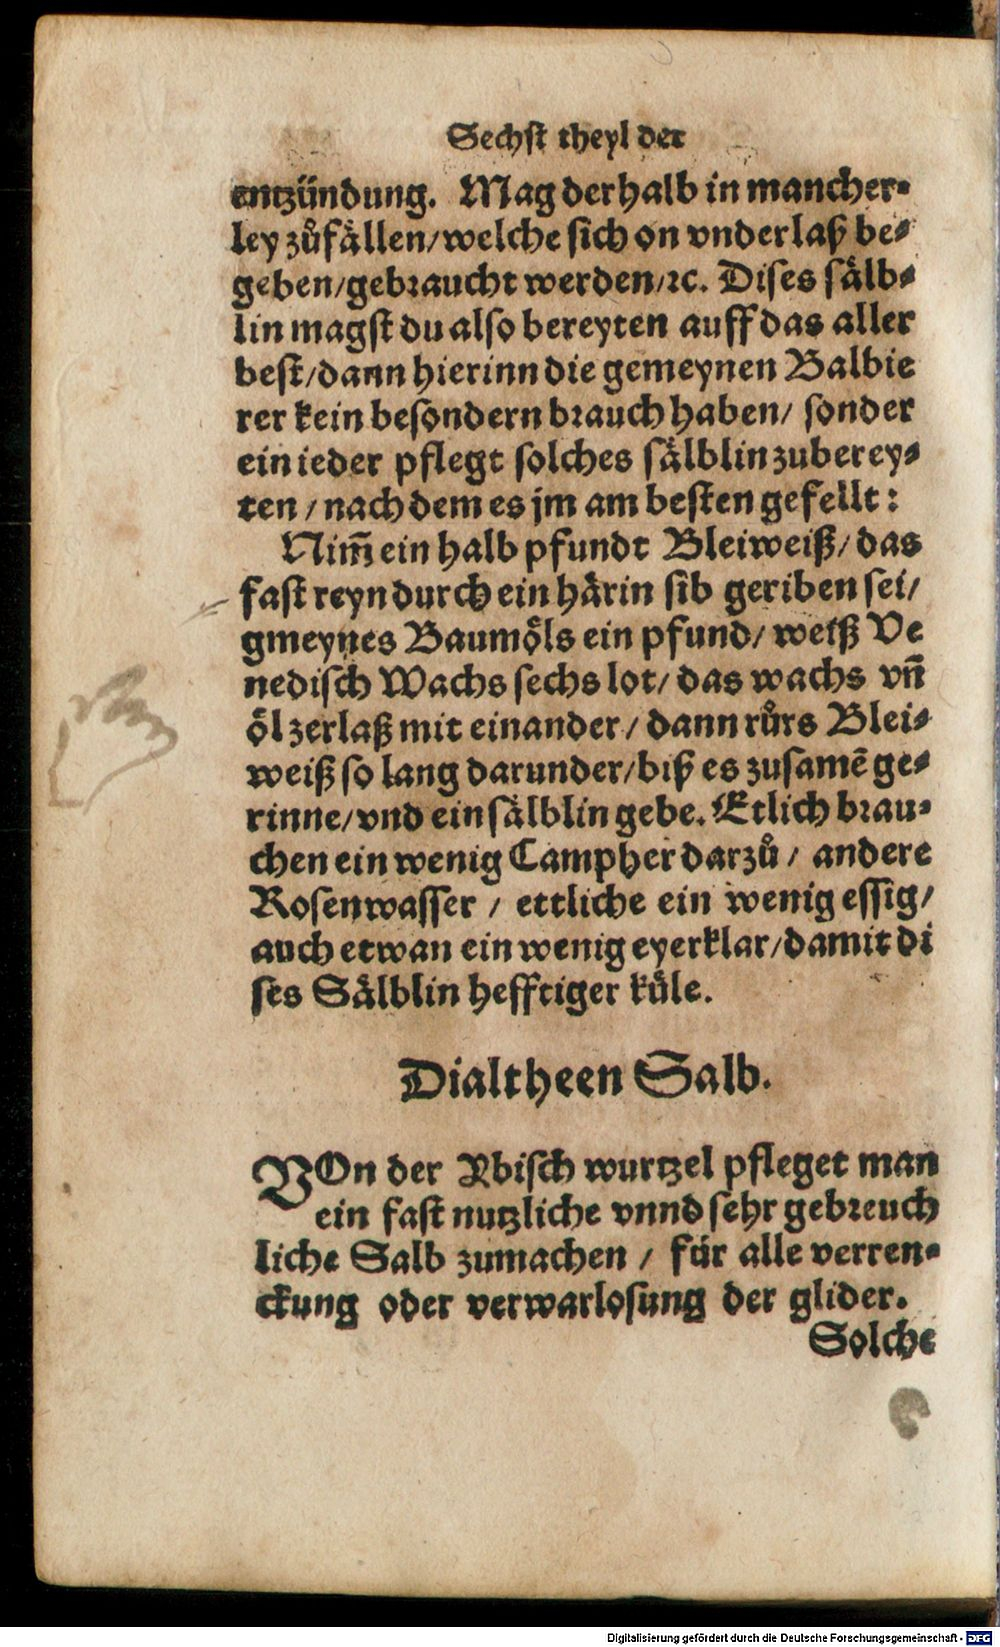 Sechst theyl der
entzündung. Mag derhalb in mancher-
ley zůfällen/welche sich on vnderlaß be-
geben/gebraucht werden/ꝛc. Dises sälb-
lin magst du also bereyten auff das aller
best/dann hierinn die gemeynen Balbie
rer kein besondern brauch haben/ sonder
ein ieder pflegt solches sälblin zuberey-
ten / nach dem es jm am besten gefellt:
Nim̃ ein halb pfundt Bleiweiß/ das
fast reyn durch ein härin sib geriben sei/
gmeynes Baumöls ein pfund/ weiß Ve
nedisch Wachs sechs lot/ das wachs vñ
öl zerlaß mit einander/ dann růrs Blei-
weiß so lang darunder/biß es zusamē ge-
rinne/vnd ein sälblin gebe. Etlich brau-
chen ein wenig Campher darzů / andere
Rosenwasser / ettliche ein wenig essig/
auch etwan ein wenig eyerklar/damit di
ses Sälblin hefftiger küle.
Dialtheen Salb.
VOn der Ybisch wurtzel pfleget man
ein fast nutzliche vnnd sehr gebreuch
liche Salb zumachen / für alle verren-
ckung oder verwarlosung der glider.
Solche
Digitalisierung gefördert durch die Deutsche Forschungsgemeinschaft - DFG